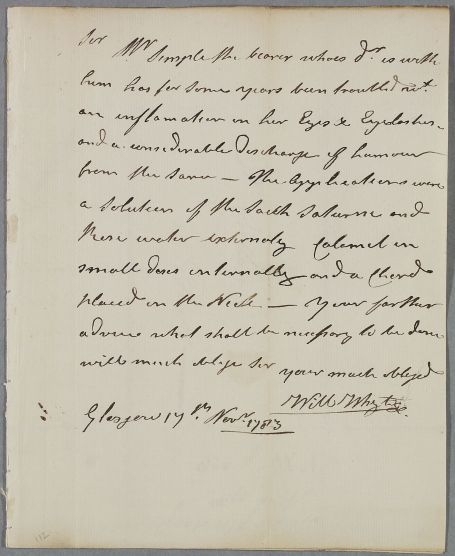 Sir
Mr Simple the bearer whoes Dr is with
him has for some years been troubld wt.
an inflamation in her Eyes & Eyelashes
and a considerable discharge of humour
from the same – The Applications were
a solution of the Sacch Saturni and
Rose water externaly Calomel in
small doses internally and a Chord
placed in the Neck – Your farther
advice what shall be necessary to be done
will much oblige Sir
your much obliged
Will Whyte
Glasgow 17th Novr. 1783
112